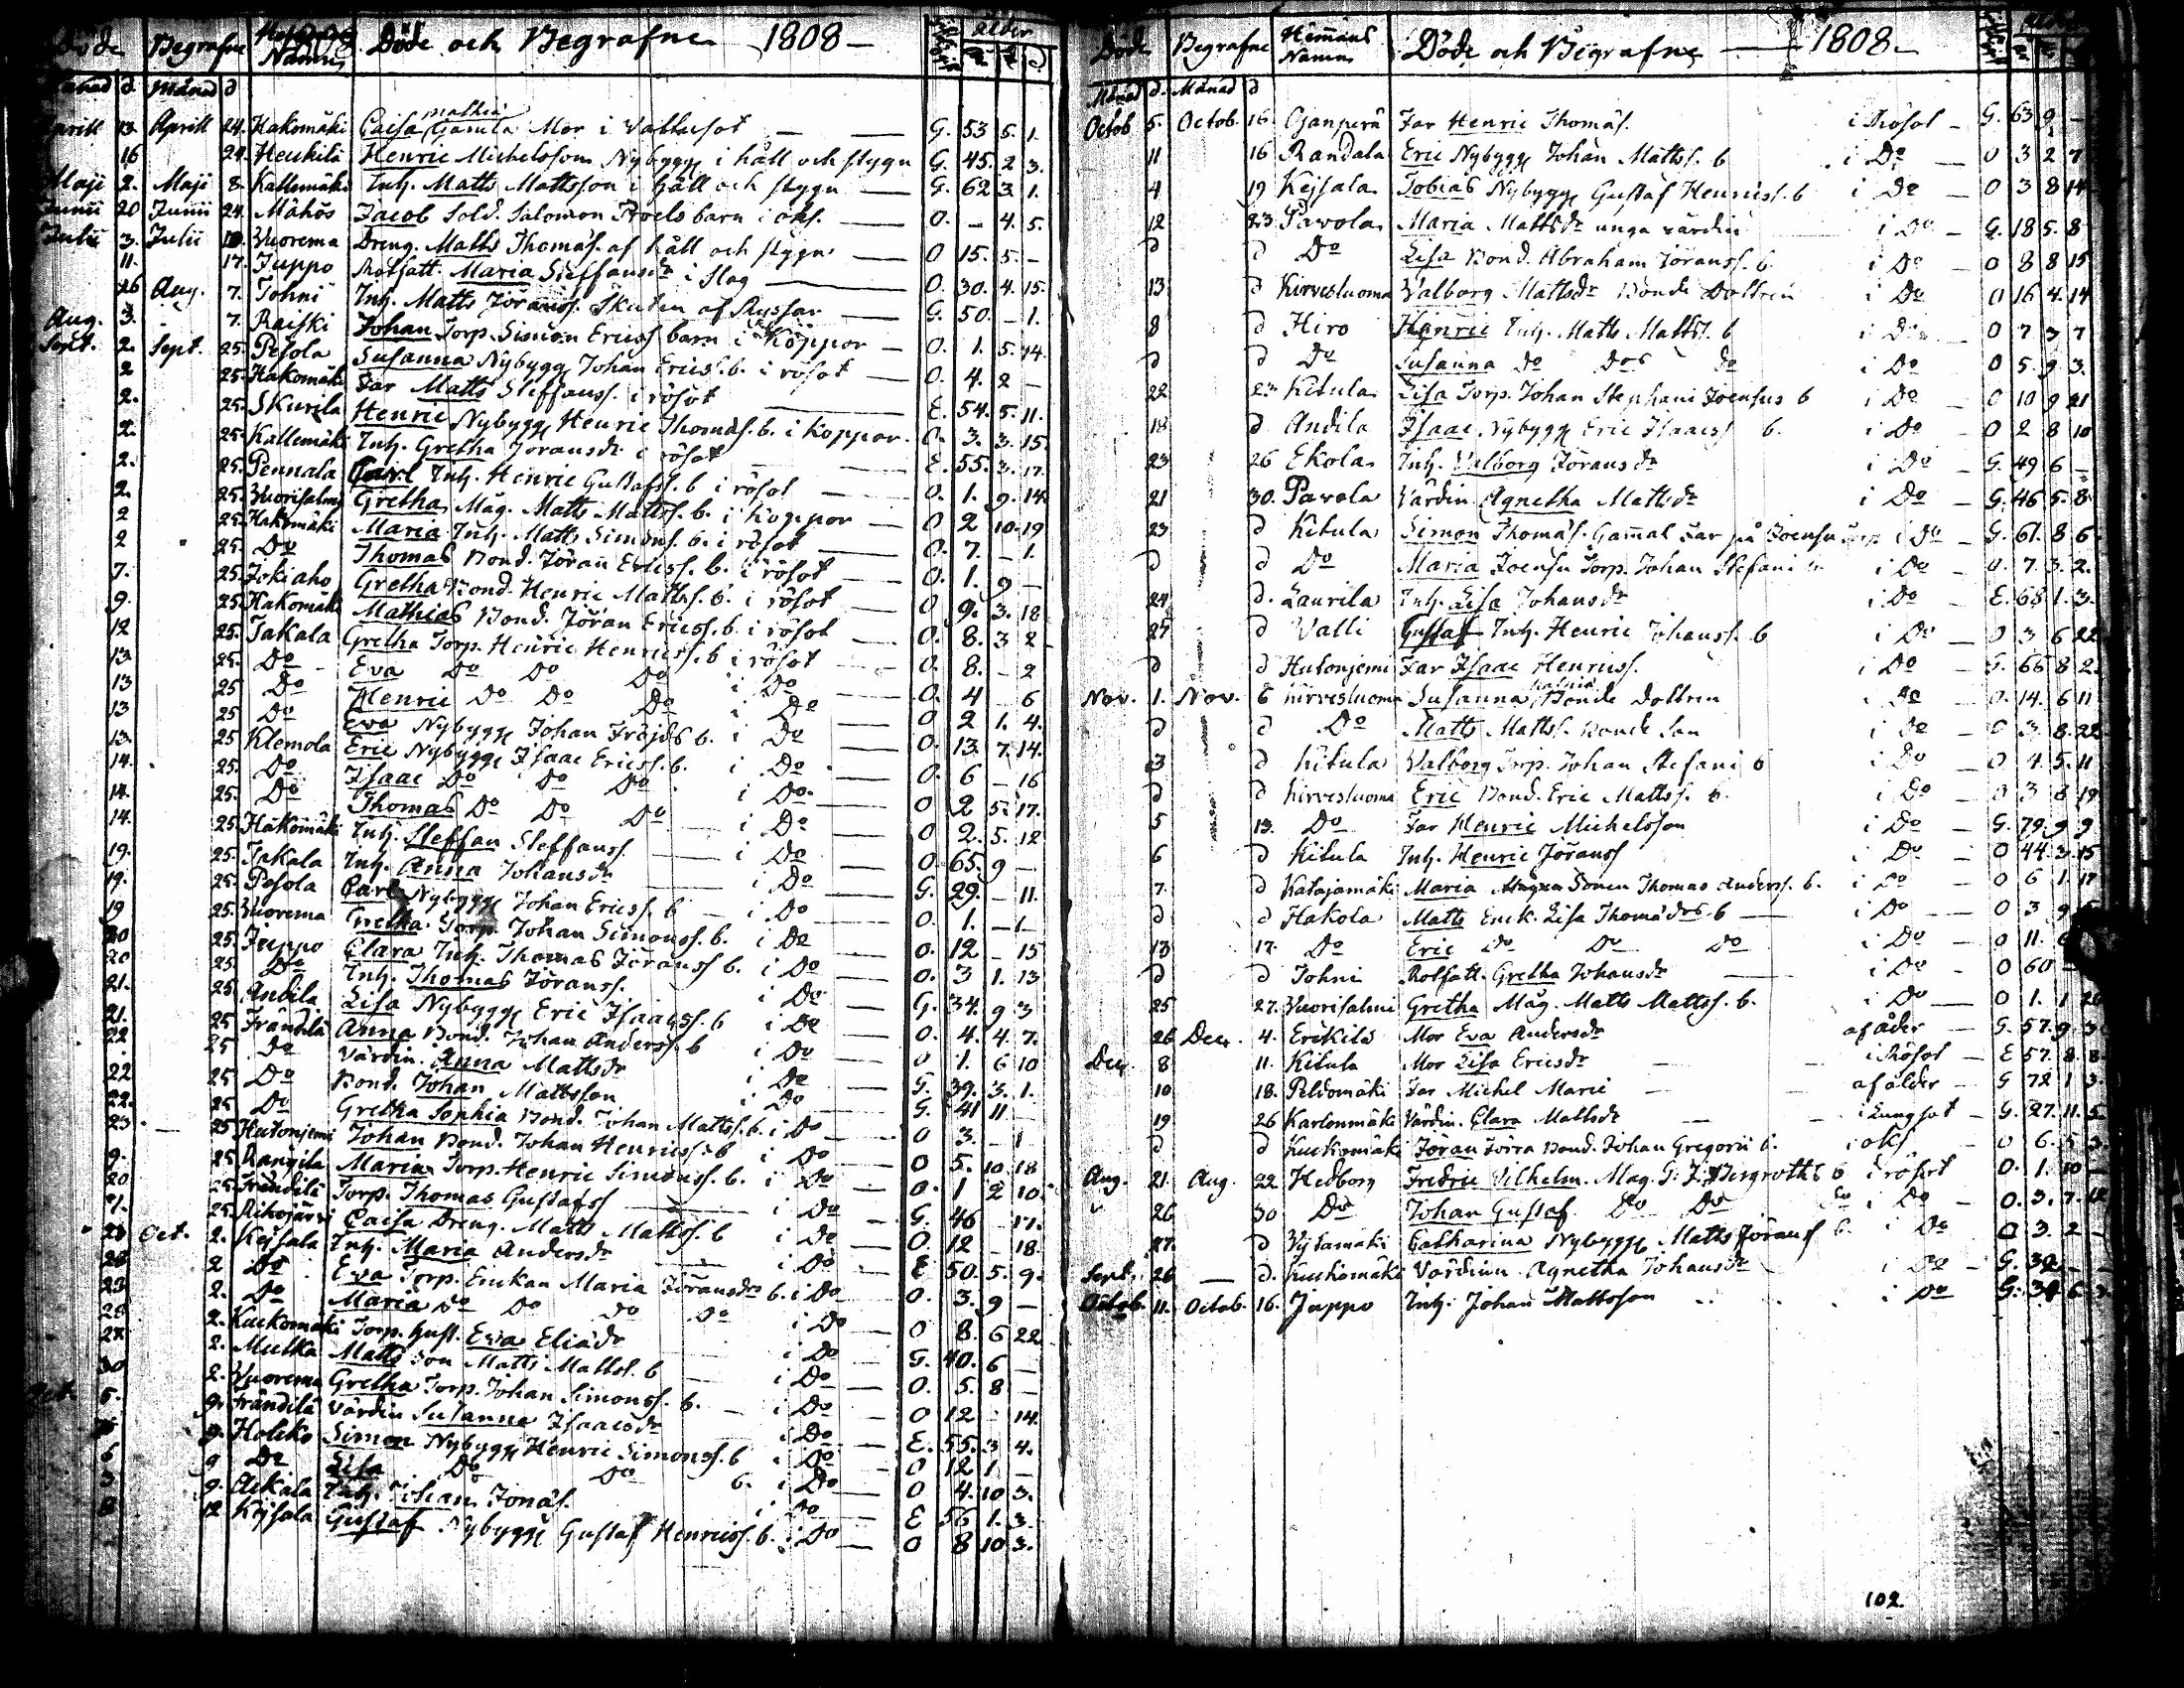 Döde Begrafne Hemmans Namn Döde och Begrafne 1808 ålder
Månad d. Månad d
Aprill 13. Aprill 24. Hakomäki Caisa Mathiä Gamla Mor i Vattusot G. 53 5. 1.
16 24. Heikilä Henric Michelsson Nybygg i håll och stygn G. 45. 2 3.
Maji 2. Maji 8. Kallemäki Inh. Matts Mattsson i håll och stygn G. 62 3 1.
Junii 20 Junii 24. Mähös Jacob Sold. Salomon Roels barn i oks. O. - 4. 5.
Julii 3. Julii 10. Vuorema Dreng. Matts Thomæs. af håll och stygn O 15. 5. -
11. 17. Juppo Rotfatt. Maria Steffansdr i slag O. 30. 4. 15.
26 Aug. 7. Johni Inh. Matts Jöranss. Skuten af Ryssar G. 50. - 1.
Aug. 3. 7. Raiski Johan Torp. Simon Ericss barn i Koppor O. 1. 5. 14.
Sept. 2. Sept. 25. Pesola Susanna Nybygg Johan Ericss. b. i rösot O. 4. 2 -
2 25. Hakomäki Far Matts Steffanss. i rösot E. 54. 5. 11.
2. 25. Skurila Henric Nybygg Henric Thomæs. b. i Koppor. O. 3. 3. 15.
2. 25. Kallemäki Inh. Gretha Joransdr i rösot E. 55. 3. 17.
2. 25. Pennala Carl Inh. Henric Gustafss. b i rösot O. 1. 9. 14.
2. 25. Vuorisalmi Gretha Måg. Matts Mattss. b. i Koppor O 2 10. 19
2 25. Hakomäki Maria Inh. Matts Simonss. b. i rösot O. 7. - 1.
2 25. Do Thomas Bond. Jöran Ericss. b. i rösot O. 1. 9 -
7. 25. Jokiaho Gretha Bond. Henric Mattss. b. i rösot O 9. 3. 18
9. 25. Hakomäki Mathias Bond. Jöran Ericss. b. i rösot O. 8. 3 2
12 25. Takala Gretha Torp. Henric Henricss. b i rösot O. 8. - 2
13. 25. Do Eva Do Do Do i Do O. 4 - 6
13 25 Do Henric Do Do Do i Do O 2 1. 4.
13 25 Do Eva Nybygg Johan Fröjds b. i Do O. 13. 7 14.
13. 25 Klemola Eric Nybygg Isaac Ericss. b. i Do O. 6 - 16
14. 25. Do Isaac Do Do Do i Do O 2 5. 17.
14. 25. Do Thomas Do Do Do i Do O 2. 5. 12
14. 25. Hakomäki Inh. Steffan Steffanss. i Do O. 65. 9 -
19. 25. Takala Inh. Anna Johansdr i Do G. 29. - 11.
19. 25. Pesola Carl Nybygg Johan Ericss. b i Do O. 1. - 1.
19 25. Vuorema Gretha Torp. Johan Simonss. b. i De O. 12 - 15
20 25. Juppo Clara Inh. Thomas Jöranss b. i Do O. 3 1. 13
20 25. Do Inh. Thomas Jöranss. i Do G. 34. 9 3
21. 25. Andila Lisa Nybygg Eric Isaacss. b i De O. 4. 4. 7.
21. 25 Frändilä Anna Bond. Johan Anderss. b i Do O 1. 6 10
22 25 Do Värdin. Anna Mattsdr i De G. 39. 3. 1.
22 25 Do Bond. Johan Mattsson i Do G. 41 11 -
22. 25 Do Gretha Sophia Bond. Johan Mattss. b. i Do O 3. - 1
23. 25 Hutonjemi Johan Bond. Johan Henricss. b i Do O 5. 10. 18
9. 25 Kangila Maria Torp. Henric Simonss. b. i Do O. 1 2 10.
20 25. Frändilä Torp. Thomas Gustafss i Do G. 46 - 17.
21. 25. Caisa Dreng. Matts Mattss. b i de O. 12 - 18.
28 Oct. 2. Kejsala Inh. Maria Andersdr i Do E 50. 5. 9.
28 2 Do Eva Torp. Enckan Maria Jöransdrs b. i Do O. 3. 9 -
23 2. Do Maria Do Do Do Do i Do O 8. 6 22
26 2. Kuckomäki Torp. Hust. Eva Eliædr i Do G. 40. 6 -
28 2. Mulka Matts Son Matts Mattss. b i Do O. 5. 8 -
30 2. Vuorema Gretha Torp. Johan Simonss. b. i Do O 12 - 14.
Oct. 5. 9. Frändilä Värdin Susanna Isaacsdr i Do E. 55. 3 4.
9. Holcko Simon Nybygg Henric Simonss. b i Do O 12 1 -
6 9 De Lisa Do Do b. i Do O 4. 10 3.
3 9. Inh. Johan Jonæs. i Do E 56 1. 3.
8 12 Kejsala Gustaf Nybygg Gustaf Henricss. b. i Do O 8 10 3.
Döde Begrafne Hemmans Namn Döde och Begrafne 1808
Månad d. Månad d
Octob 5. Octob. 16. Ojanperä Far Henric Thomæs. i Rösot G. 63 9 -
11 16 Randala Eric Nybygg Johan Mattss. b i Do O 3 2 7
4 19 Kejsala Tobias Nybygg Gustaf Henricss. b i De O 3 8 14
12 23. Pavola Maria Mattsdr unga värdin i Do G. 18 5. 8
d d Do Lisa Bond. Abraham Jöranss. b. i Do O 8 8 15
13 d Kirvesluoma Valborg Mattsdr Bonde Dottren i Do O 16 4. 14
8 d Hiro Henric Inh. Matts Mattss. b i Do O 7 3 7
d d Do Susanna Do Dos Do i Do O 5. 9. 3.
22 23 Kitula Lisa Torp. Johan Stephani Joensus b i Do O 10 9 21
18 d Andila Isaac Nybygg Eric Isaacss b. i Do O 2 8 10
23 26 Ekola Inh. Valborg Jöransdr i Do G. 49 6 -
21 30. Pavola Värdin Agnetha Mattsdr i Do G. 46 5. 8
23 d Kitula Simon Thomæs. Gammal Far på Joensu Torp i Do G. 61. 8 6
d d Do Maria Joensu Torp. Johan Stefani b. i Do O. 7. 3. 2.
24 d. Laurila Inh. Lisa Johansdr i Do E. 68 1. 3.
27 d Valli Gustaf Inh. Henric Johanss. b i Do O 3 6 22
d d Hutonjemi Far Isaac Henricss. i Do G. 66 8 2
Nov. 1. Nov. 6 Kirvesluoma Susanna Bonde dottren i De O. 14. 6 11
d d Do Matts Mattss. Bonde Son i de O 3. 8. 22
3 d Kitula Valborg Torp. Johan Stefani b i Do O 4. 5. 11
d d Kirvesluoma Eric Bond. Eric Mattss. b. i Do O 3 8 19
5 13. Do Far Henric Michelsson i Do G. 79. 9 9
6 d Kitula Inh. Henric Jöranss i Do O 44. 3. 15
7. d Katajamäki Maria Sonen Thomas Anderss. b. i Do O 6 1. 17
d d Hakola Matts Enck. Lisa Thomædrs b i Do O 3 9
13 17. Do Eric Do Do Do i Do O 11.
d d Johni Rotfatt. Gretha Johansdr i Do O 60
25 27. Vuorisalmi Gretha Måg. Matts Mattss. b. i Do O 1. 1
26 Decr. 4. Erikilä Mor Eva Andersdr af ålder G. 57. 9. 3
Decr. 8 11. Kitula Mor Lisa Ericsdr i Rösot E 57. 8. 8
10 18. Peldomäki Far Michel Marci af ålder G 72 1 3.
19 26 Karlonmäki Värdin. Clara Mattsdr i Lungsot G. 27. 11. 5
d d Kuckomäki Jöran Jörra Bond. Johan Gregorii b. i oks O 6. 5 3.
Aug. 21. Aug. 22 Hedborg Fredric Vilhelm. Mag. G: J. Bergroths b i rösot O. 1. 10 -
26 30 Do Johan Gustaf. Do Do Do i Do O. 3. 7. 12
27. d Catharina Nybygg Matts Jöranss b. i Do O 3. 2 -
Sept. 26 d. Kuckomäki Värdinn Agnetha Johansdr i De G. 32 -
Octob. 11. Octob. 16. Juppo Inh. Johan Mattsson i Do G. 34 6
102.